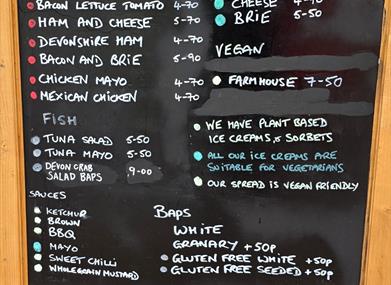 BACON LETTUCE TOMATO 4-70
HAM AND CHEESE 5-70
DEVONSHIRE HAM 4-70
BACON AND BRIE 5-90
CHICKEN MAYO 4-70
MEXICAN CHICKEN 4-70
FISH
TUNA SALAD 5-50
TUNA MAYO 5-50
DEVON CRAB
SALAD BAPS 9-00
SAUCES
KETCHUP
BROWN
BBQ
MAYO
SWEET CHILLI
WHOLEGRAIN MUSTARD
CHEESE 4-70
BRIE 5-50
VEGAN
FARMHOUSE 7-50
WE HAVE PLANT BASED
ICE CREAMS, & SORBETS
ALL OUR ICE CREAMS ARE
SUITABLE FOR VEGETARIANS
OUR SPREAD IS VEGAN FRIENDLY
BAPS
WHITE
GRANARY +50p
GLUTEN FREE WHITE +50p
GLUTEN FREE SEEDED +50p